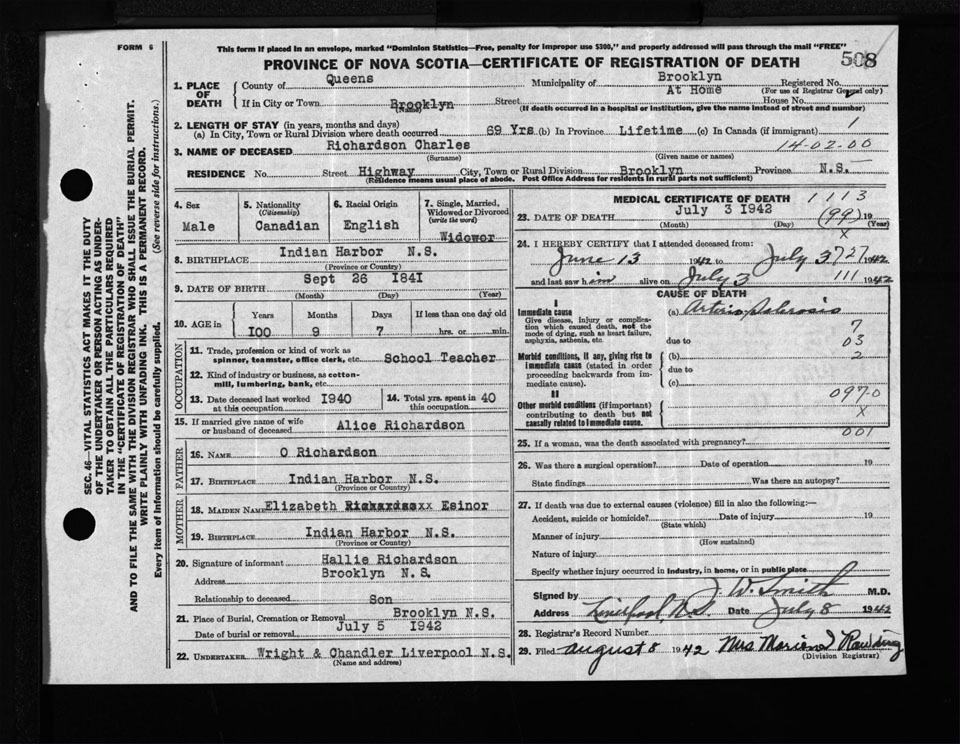 FORM 6
This form if placed in an envelope, marked "Dominion Statistics—Free, penalty for improper use $300," and properly addressed will pass through the mail "FREE"
PROVINCE OF NOVA SCOTIA—CERTIFICATE OF REGISTRATION OF DEATH
508
1. PLACE OF DEATH
County of Queens Municipality of Brooklyn Registered No.
(For use of Registrar General only)
If in City or Town Brooklyn Street At Home House No.
(Name) (If death occurred in a hospital or institution, give the name instead of street and number)
2. LENGTH OF STAY (in years, months and days)
(a) In City, Town or Rural Division where death occurred 69 Yrs (b) In Province Lifetime (c) In Canada (if immigrant)
1
3. NAME OF DECEASED Richardson Charles 14-02-00
(Surname) (Given name or names)
RESIDENCE No. Street Highway City, Town or Rural Division Brooklyn Province N.S.
(Residence means usual place of abode. Post Office Address for residents in rural parts not sufficient)
4. Sex
Male
5. Nationality
(Citizenship)
Canadian
6. Racial Origin
English
7. Single, Married, Widowed or Divorced
(write the word)
Widower
8. BIRTHPLACE Indian Harbor N.S.
(Province or Country)
9. DATE OF BIRTH Sept 26 1841
(Month) (Day) (Year)
10. AGE in
Years Months Days If less than one day old
100 9 7 hrs. or min.
OCCUPATION
11. Trade, profession or kind of work as spinner, teamster, office clerk, etc. School Teacher
12. Kind of industry or business, as cotton-mill, lumbering, bank, etc.
13. Date deceased last worked at this occupation 1940
14. Total yrs. spent in this occupation 40
15. If married give name of wife or husband of deceased Alice Richardson
FATHER
16. NAME O Richardson
17. BIRTHPLACE Indian Harbor N.S.
(Province or Country)
MOTHER
18. MAIDEN NAME Elizabeth Richardsoxx Esinor
19. BIRTHPLACE Indian Harbor N.S.
(Province or Country)
20. Signature of informant Hallie Richardson
Address Brooklyn N.S.
Relationship to deceased Son
21. Place of Burial, Cremation or Removal Brooklyn N.S.
Date of burial or removal July 5 1942
22. UNDERTAKER Wright & Chandler Liverpool N.S.
(Name and address)
MEDICAL CERTIFICATE OF DEATH
1113
23. DATE OF DEATH July 3 1942 (99) 19
(Month) (Day) (Year)
x
24. I HEREBY CERTIFY that I attended deceased from:
June 13 1942 to July 3 727 1942
and last saw him alive on July 3 111 1942
CAUSE OF DEATH
I
Immediate cause
Give disease, injury or complication which caused death, not the mode of dying, such as heart failure, asphyxia, asthenia, etc.
(a) Arterio Sclerosis
7
due to 03
Morbid conditions, if any, giving rise to immediate cause (stated in order proceeding backwards from immediate cause).
(b) 2
due to
(c)
II
Other morbid conditions (if important) contributing to death but not causally related to immediate cause.
097-0
x
001
25. If a woman, was the death associated with pregnancy?
26. Was there a surgical operation? Date of operation 19
State findings Was there an autopsy?
27. If death was due to external causes (violence) fill in also the following:—
Accident, suicide or homicide? Date of injury 19
(State which)
Manner of injury
(How sustained)
Nature of injury
Specify whether injury occurred in industry, in home, or in public place
Signed by J. W. Smith M.D.
Address Liverpool, N.S. Date July 8 1942
28. Registrar's Record Number
29. Filed August 8 1942 Mrs Marion
(Division Registrar)
SEC. 46—VITAL STATISTICS ACT MAKES IT THE DUTY
OF THE UNDERTAKER OR PERSON ACTING AS UNDER-
TAKER TO OBTAIN ALL THE PARTICULARS REQUIRED
IN THE "CERTIFICATE OF REGISTRATION OF DEATH"
AND TO FILE THE SAME WITH THE DIVISION REGISTRAR WHO SHALL ISSUE THE BURIAL PERMIT.
WRITE PLAINLY WITH UNFADING INK. THIS IS A PERMANENT RECORD.
Every item of Information should be carefully supplied. (See reverse side for instructions.)